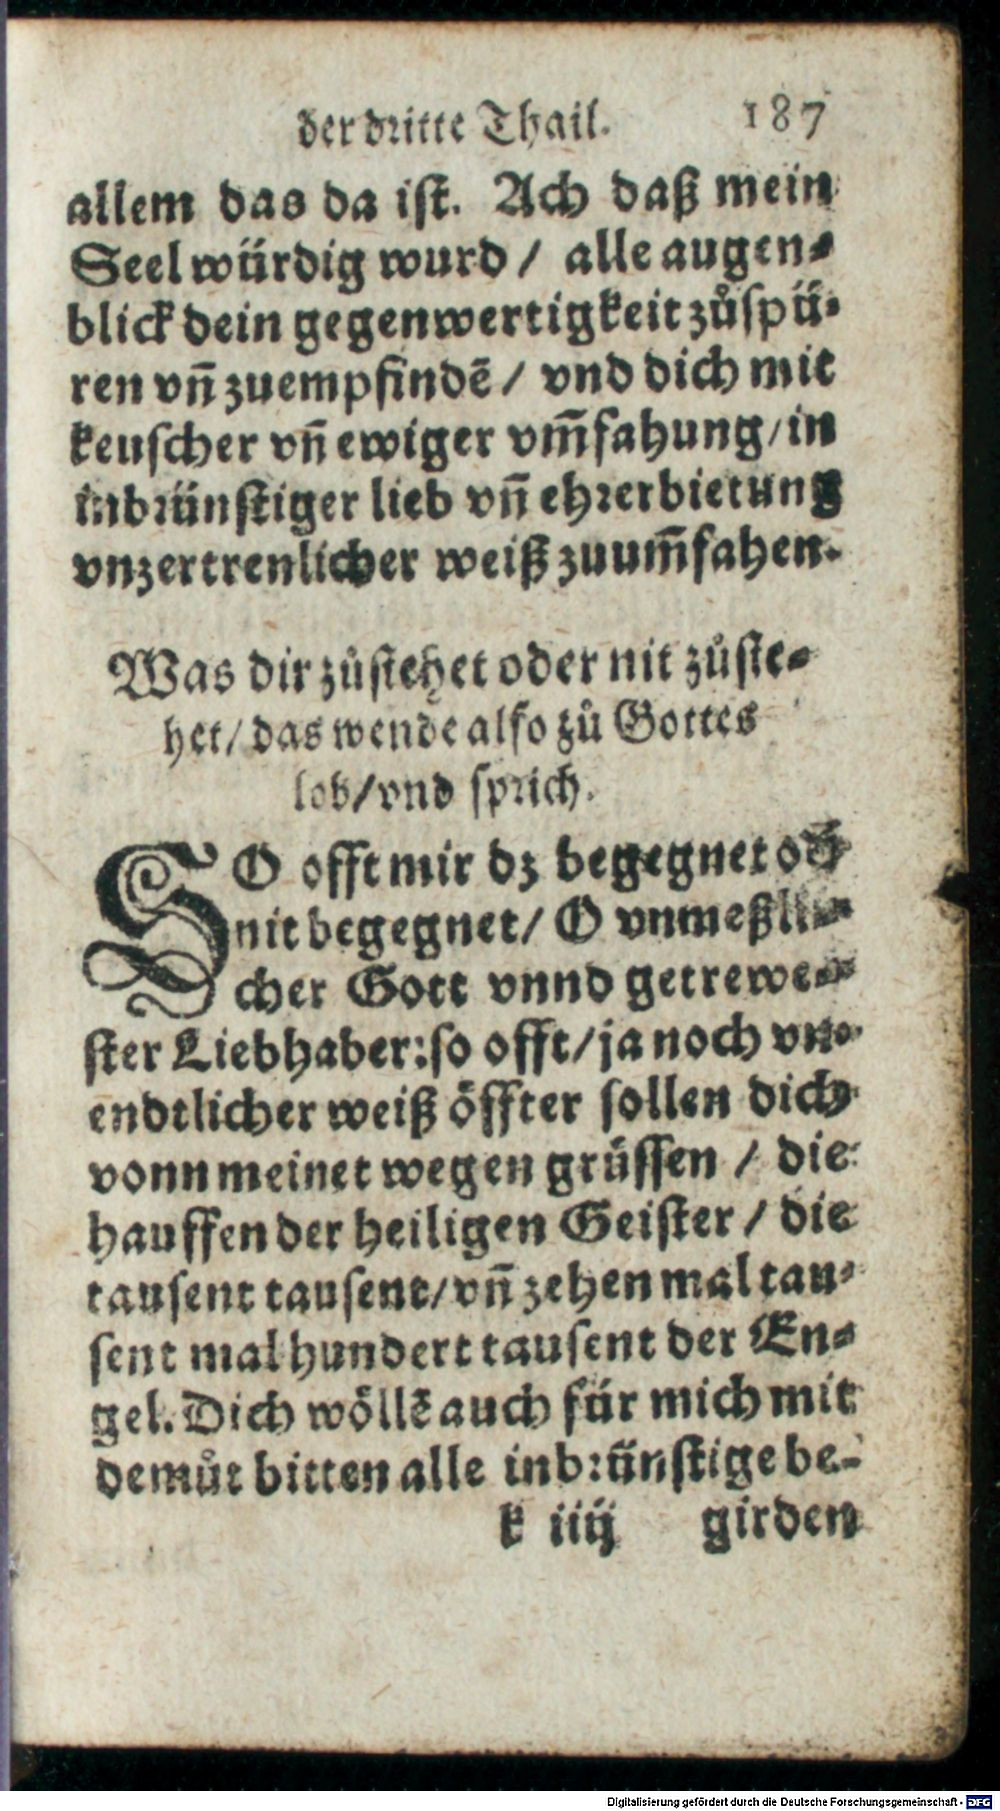 der dritte Thail. 187
allem das da iſt. Ach daß mein
Seel würdig wurd / alle augen⸗
blick dein gegenwertigkeit zůſpü⸗
ren vñ zuempfindē / vnd dich mit
keuſcher vñ ewiger vm̃fahung / in
inbrünſtiger lieb vñ ehrerbietung
vnzertrenlicher weiß zuum̃fahen.
Was dir zůſtehet oder nit zůſte⸗
het / das wende alſo zů Gottes
lob / vnd ſprich.
SO offt mir dz begegnet od̄
nit begegnet / O vnmeßli⸗
cher Gott vnnd getrewe⸗
ſter Liebhaber: ſo offt / ja noch vn⸗
endtlicher weiß öffter ſollen dich
vonn meinet wegen grüſſen / die
hauffen der heiligen Geiſter / die
tauſent tauſent / vñ zehen mal tau⸗
ſent mal hundert tauſent der En⸗
gel. Dich wöllē auch für mich mit
demůt bitten alle inbrünſtige be⸗
k iiij girden
Digitalisierung gefördert durch die Deutsche Forschungsgemeinschaft - DFG